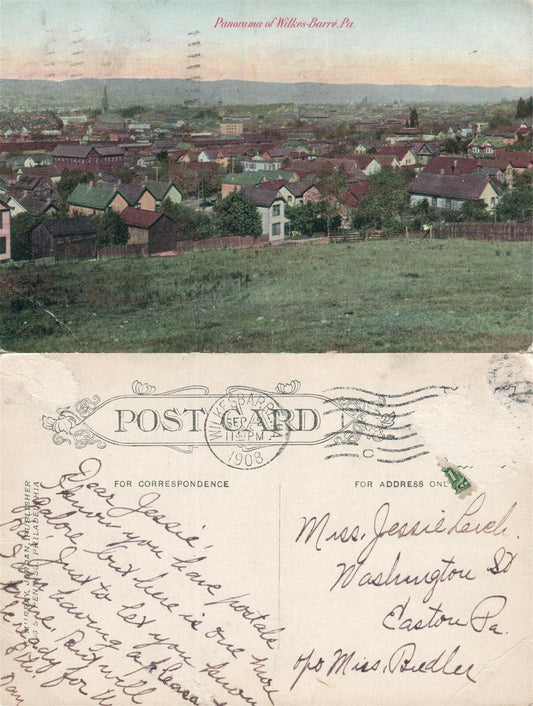 Panorama of Wilkes-Barré, Pa.
POST CARD
WILKESBARRE PA.
SEP
11 30 PM
1908
FOR CORRESPONDENCE
FOR ADDRESS ONLY
JORDAN, PUBLISHER
PHILADELPHIA
Dear Jessie,
I know you have postals
galore but here is one more
Just to let you know
I am having a pleasant
time. But will
be ready for
Miss. Jessie Lerch.
Washington St
Easton Pa.
c/o Miss. Bidler